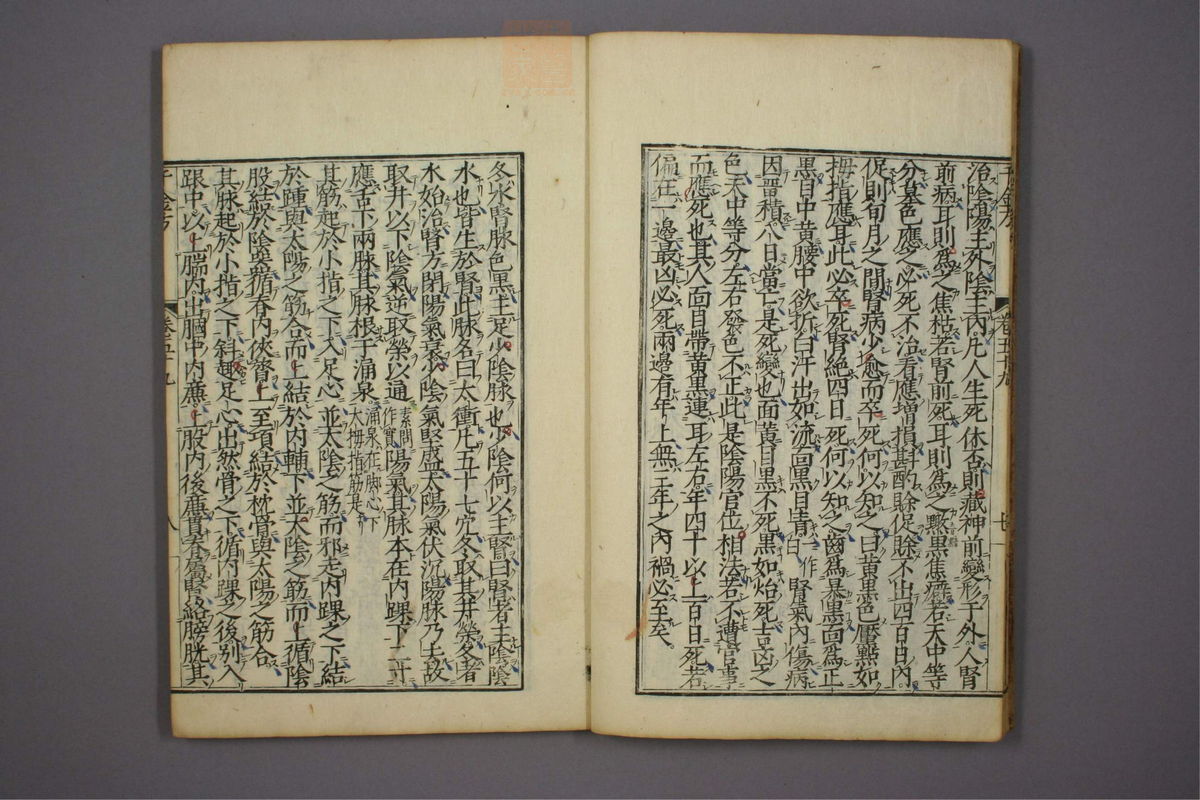 治陰傷主死陰主丙凡人生死休否則藏神前變形于外人腎
前病耳則爲之焦枯若腎前死耳則爲之黧黑焦癖若天中等
分墓色應之必死不治看應增損斟酌賖促賖不出四百日內
促則旬月之間腎病少愈而卒死何以知之曰黃黑色黶點如
拇指應耳此必卒死腎絕四日死何以知之齒爲暴黑面爲正
黑目中黃腰中欲折白汗出如流面黑目靑一作白腎氣內傷病
因留積八日當亡是死變也面黃目黑不死黑如炲死吉凶之
色天中等分左右發色不正此是陰陽官位相法若不遭官事
而應死也其人面目帶黃黑連耳左右年四十以上百日死若
偏在一邊最凶必死兩邊有年上無三年之內禍必至矣
冬水腎脉色黑主足少陰脉也少陰何以主腎曰腎者主陰陰
水也皆生於腎此脉名曰太衝凡五十七穴冬取其井榮冬者
水始治腎方閉陽氣衰少陰氣堅盛太陽氣伏沉陽脉乃去故
取井以下陰氣逆取榮以通素問作實陽氣其脉本在内踝下二寸
應舌下兩脉其脉根于涌泉涌泉在脚心下大拇指筋是
其筋起於小指之下入足心並太陰之筋而邪走内踝之下結
於踵與太陽之筋合而上結於内輔下並太陰之筋而上循陰
股結於陰器循脊内俠膂上至項結於枕骨與太陽之筋合
其脉起於小指之下斜趣足心出然骨之下循内踝之後別入
跟中以上腨内出膕中内廉上股内後廉貫脊屬腎絡膀胱其